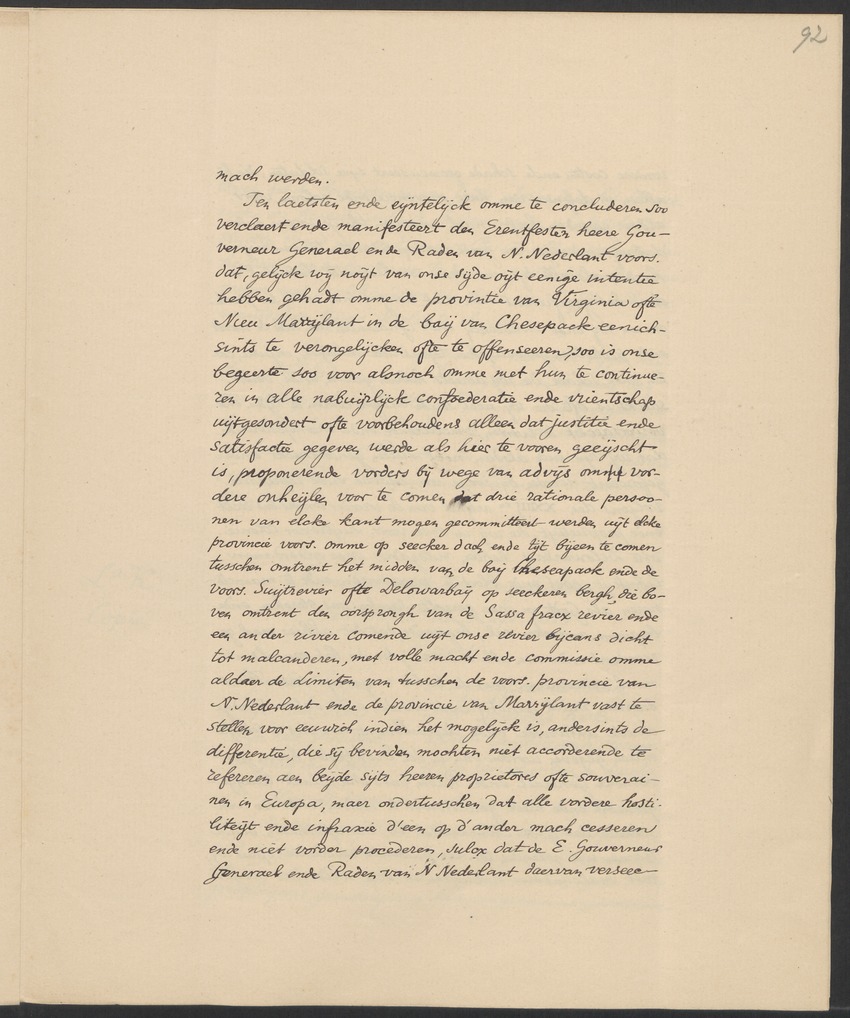 92
mach werden.
Ten laetsten ende eÿntelÿck omme te concluderen soo
verclaert ende manifesteert den Erentfesten heere Gou-
verneur Generael ende Raden van N. Nederlant voors.
dat, gelÿck wÿ noÿt van onse sÿde oÿt eenige intentie
hebben gehadt omme de provintie van Virginia ofte
Nieu Marrÿlant in de baÿ van Chesepack eenich-
sints te verongelÿcken ofte te offenseeren, soo is onse
begeerte soo voor alsnoch omme met hun te continue-
ren in alle nabuÿrlÿck confoederatie ende vrientschap
uÿtgesondert ofte voorbehoudens alleen dat justitie ende
satisfactie gegeven werde als hier te vooren geeÿscht
is, proponerende vorders bÿ wege van advÿs omme vor-
dere onheÿlen voor te comen dat drie rationale persoo-
nen van elcke kant mogen gecommitteert werden uÿt elcke
provincie voors. omme op seecker dach ende tÿt bÿeen te comen
tusschen omtrent het midden van de baÿ Cheseapack ende de
voors. Suÿtrevier ofte Delowarbaÿ op seeckeren bergh, die bo-
ven omtrent den oorsprongh van de Sassafracx revier ende
een ander rivier comende uÿt onse revier bÿcans dicht
tot malcanderen, met volle macht ende commissie omme
aldaer de Limiten van tusschen de voors. provincie van
N. Nederlant ende de provincie van Marrÿlant vast te
stellen voor eeuwich indien het mogelÿck is, andersints de
differentie, die sÿ bevinden mochten niet accorderende te
refereren aen beÿde sÿts heeren proprietores ofte souverai-
nen in Europa, maer ondertusschen dat alle vordere hosti-
liteÿt ende infraxie d'een op d'ander mach cesseren
ende niet vorder procederen, sulcx dat de E. Gouverneur
Generael ende Raden van N Nederlant daervan versee-